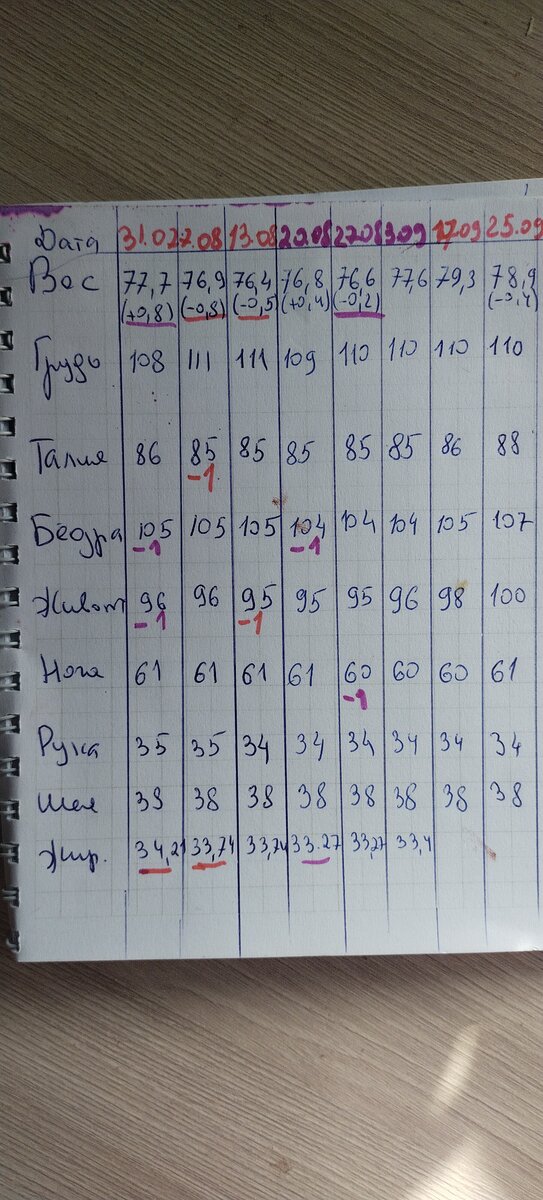 Дата 31.07 7.08 13.08 20.08 27.08 3.09 17.09 25.09
Вес 77,7 76,9 76,4 76,8 76,6 77,6 79,3 78,9
(+0,8) (-0,8) (-0,5) (+0,4) (-0,2) (-0,4)
Грудь 108 111 111 109 110 110 110 110
Талия 86 85 85 85 85 85 86 88
-1
Бедра 105 105 105 104 104 104 105 107
-1 -1
Живот 96 96 95 95 95 96 98 100
-1 -1
Нога 61 61 61 61 60 60 60 61
-1
Рука 35 35 34 34 34 34 34 34
Шея 39 38 38 38 38 38 38 38
Жир. 34,21 33,74 33,74 33.27 33,27 33,4